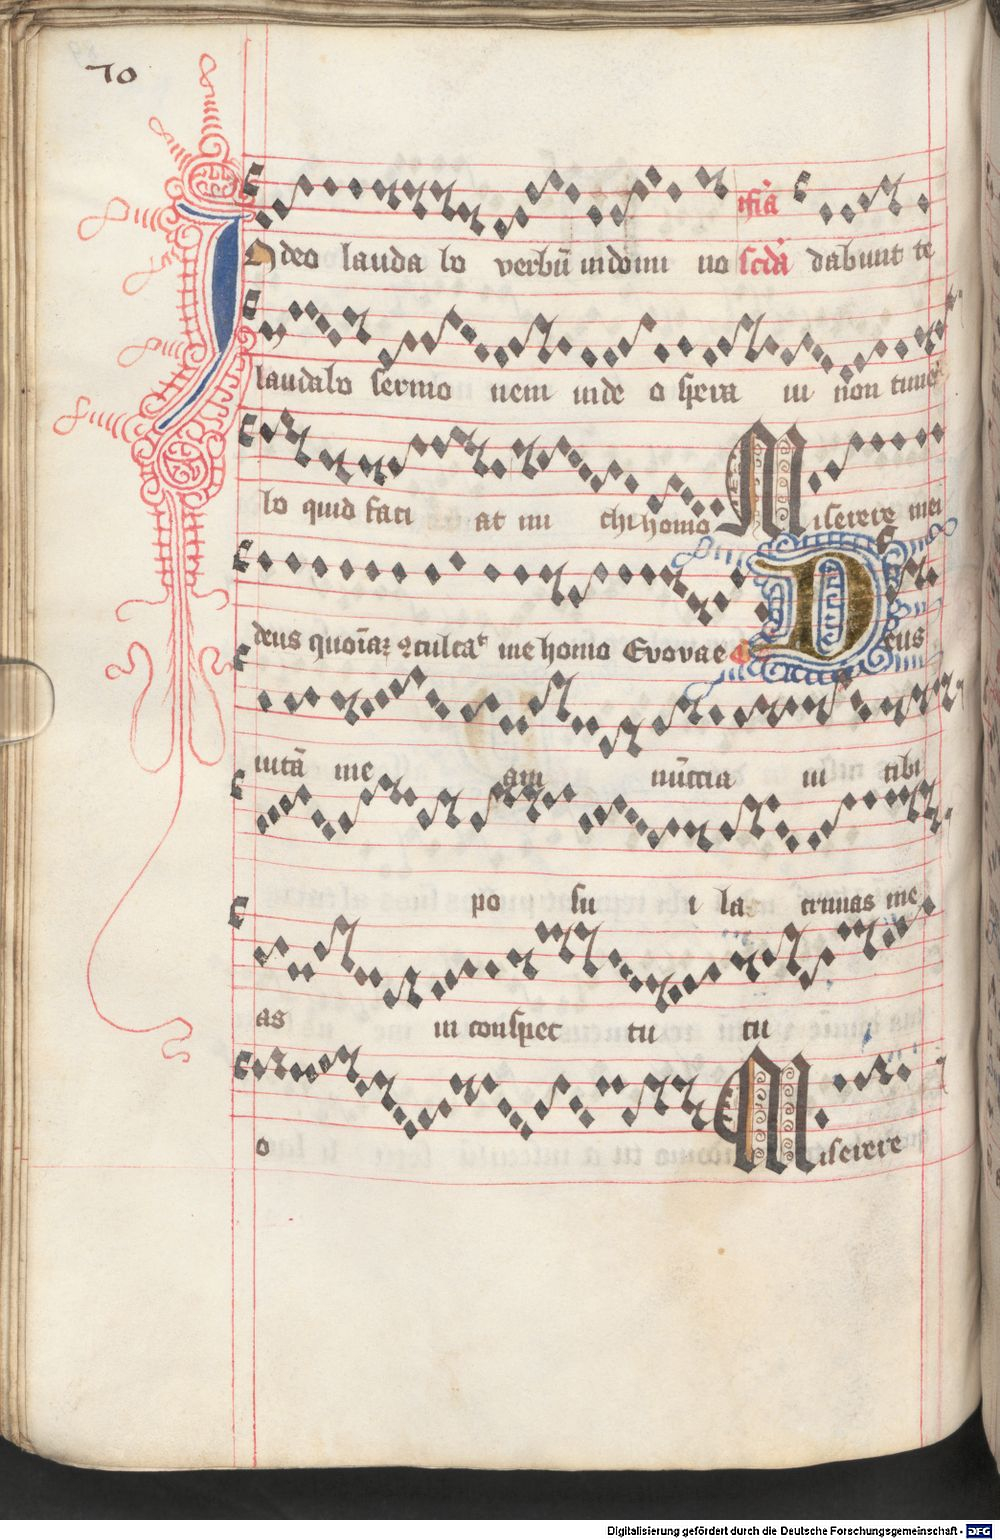 70
In deo lauda bo verbū in domi no scd̄a dabunt te
laudabo sermo nem in de o spera ui non timē
bo quid faci at mi chi homo Miserere mei
deus quoīaꝫ ꝯculcaᵗ me homo Evovae Deus
uitā me am nūncia ui tibi
po su i la crimas me
as in conspec tu tu
o Miserere
Digitalisierung gefördert durch die Deutsche Forschungsgemeinschaft - DFG